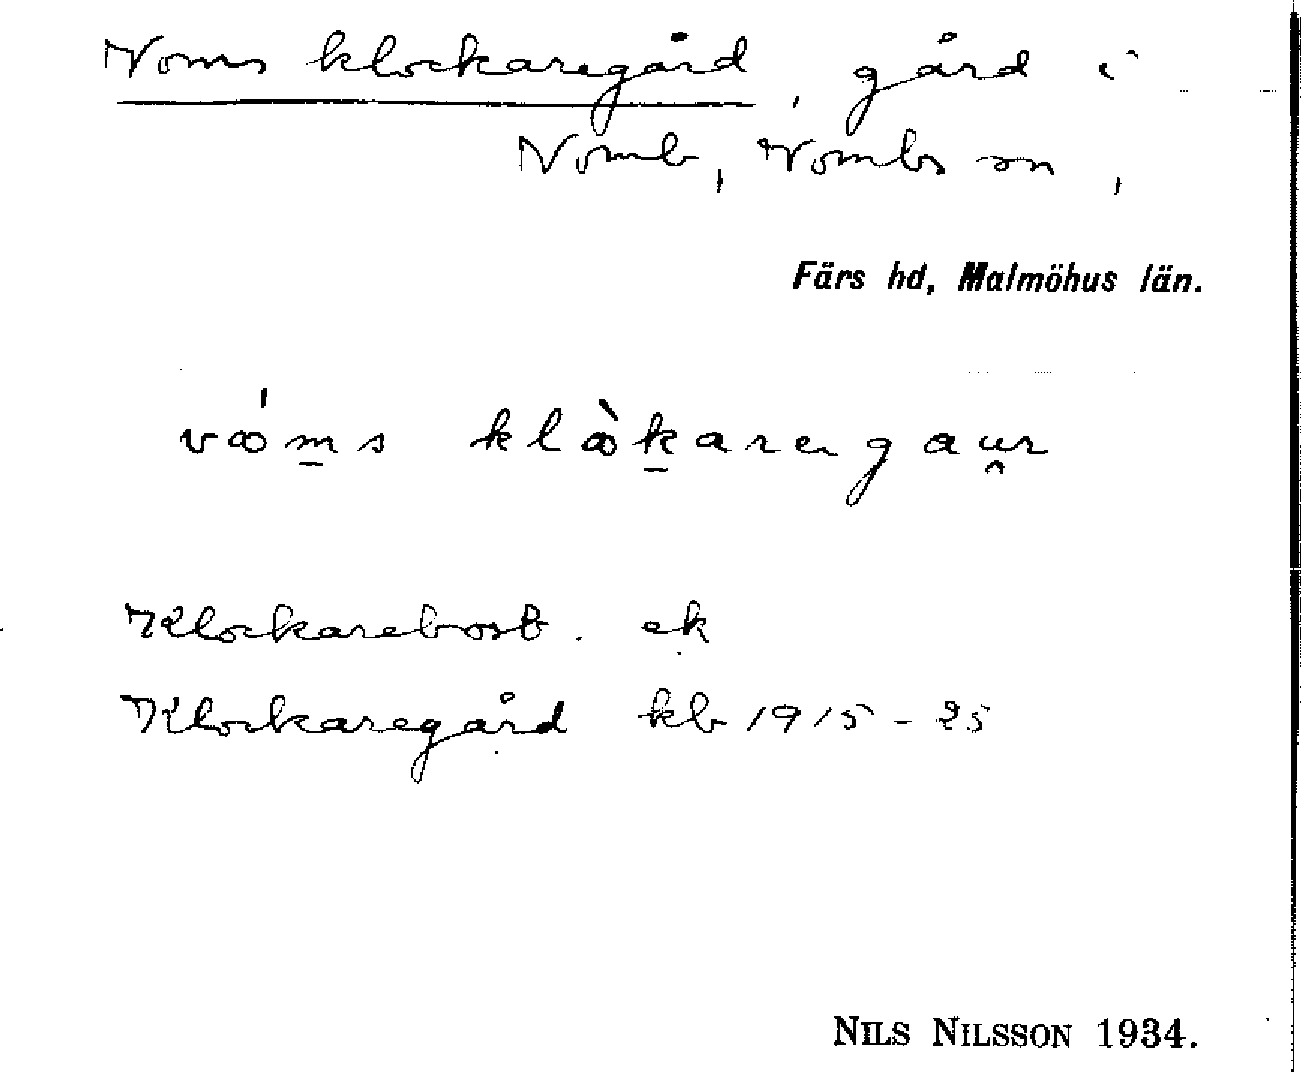 Voms klockaregård, gård i
Vomb, Vombs sn,
Färs hd, Malmöhus län.
vꝏ́m̲s klꝏ̀k̲aregau̯r
Klockarebost. ek
Klockaregård kb 1915-25
NILS NILSSON 1934.